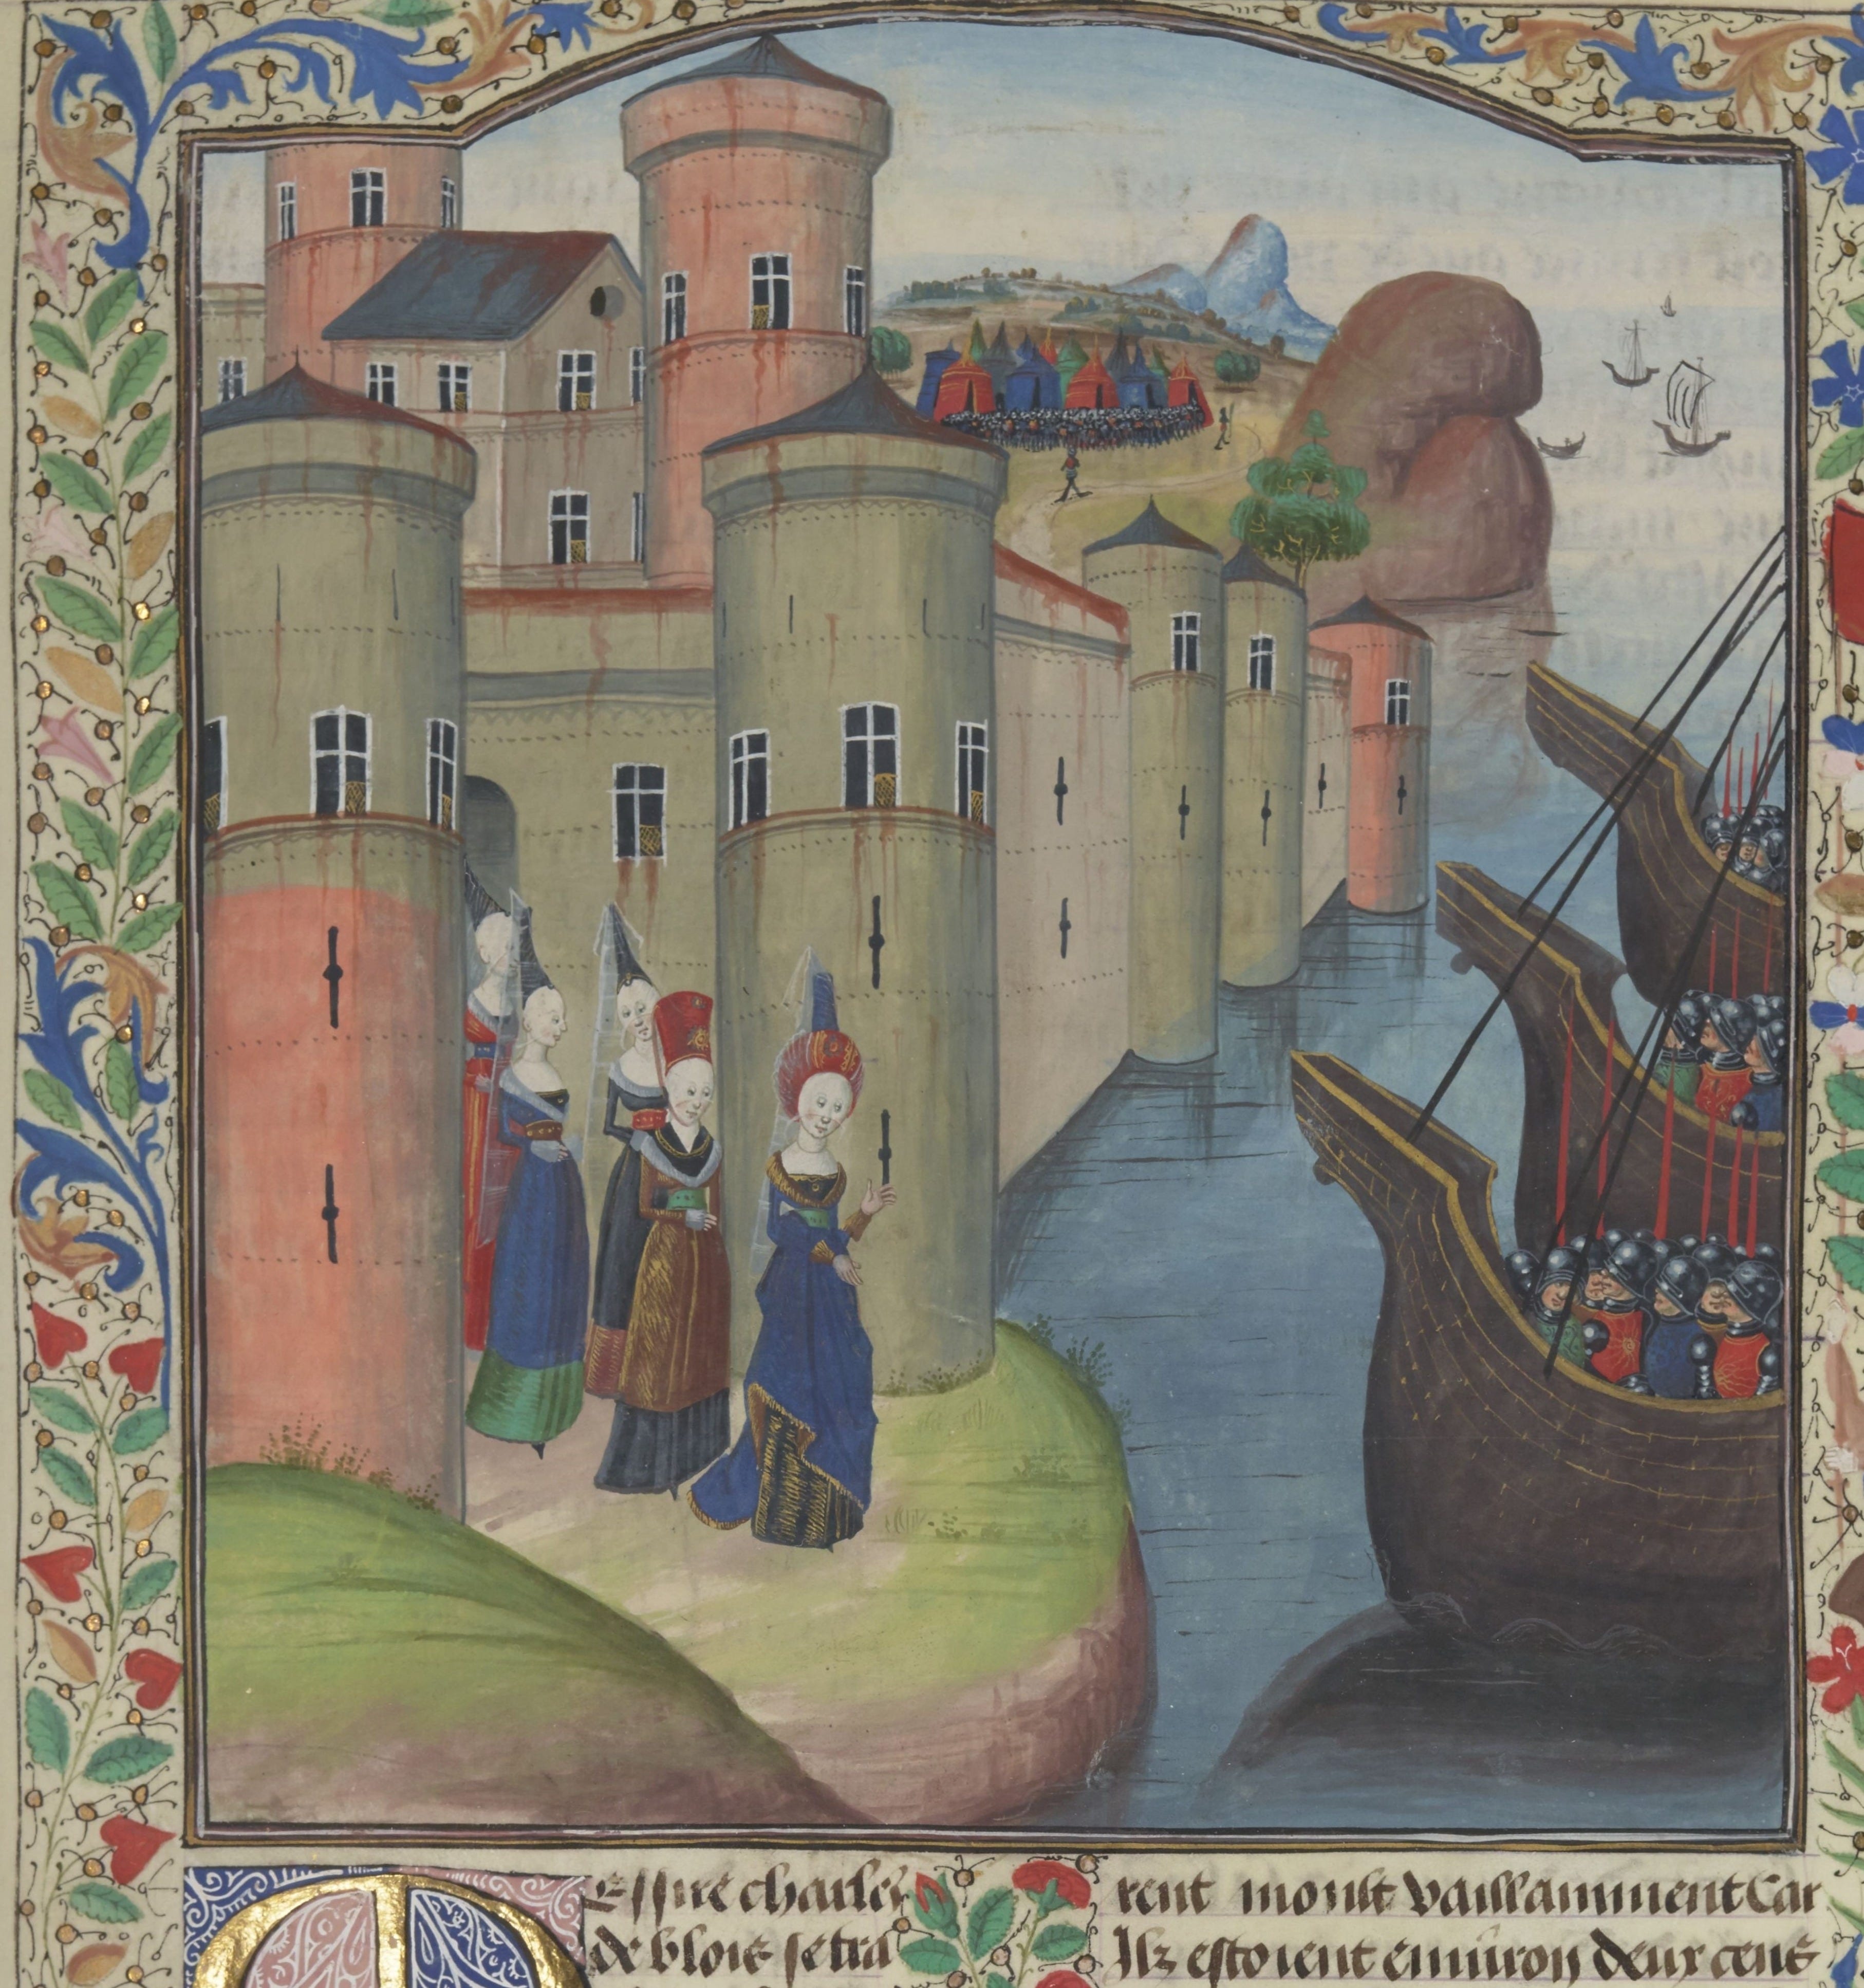 Messire charles
de blois se tra
rent moult vaillamment Car
Ilz estoient enuiron deux cens